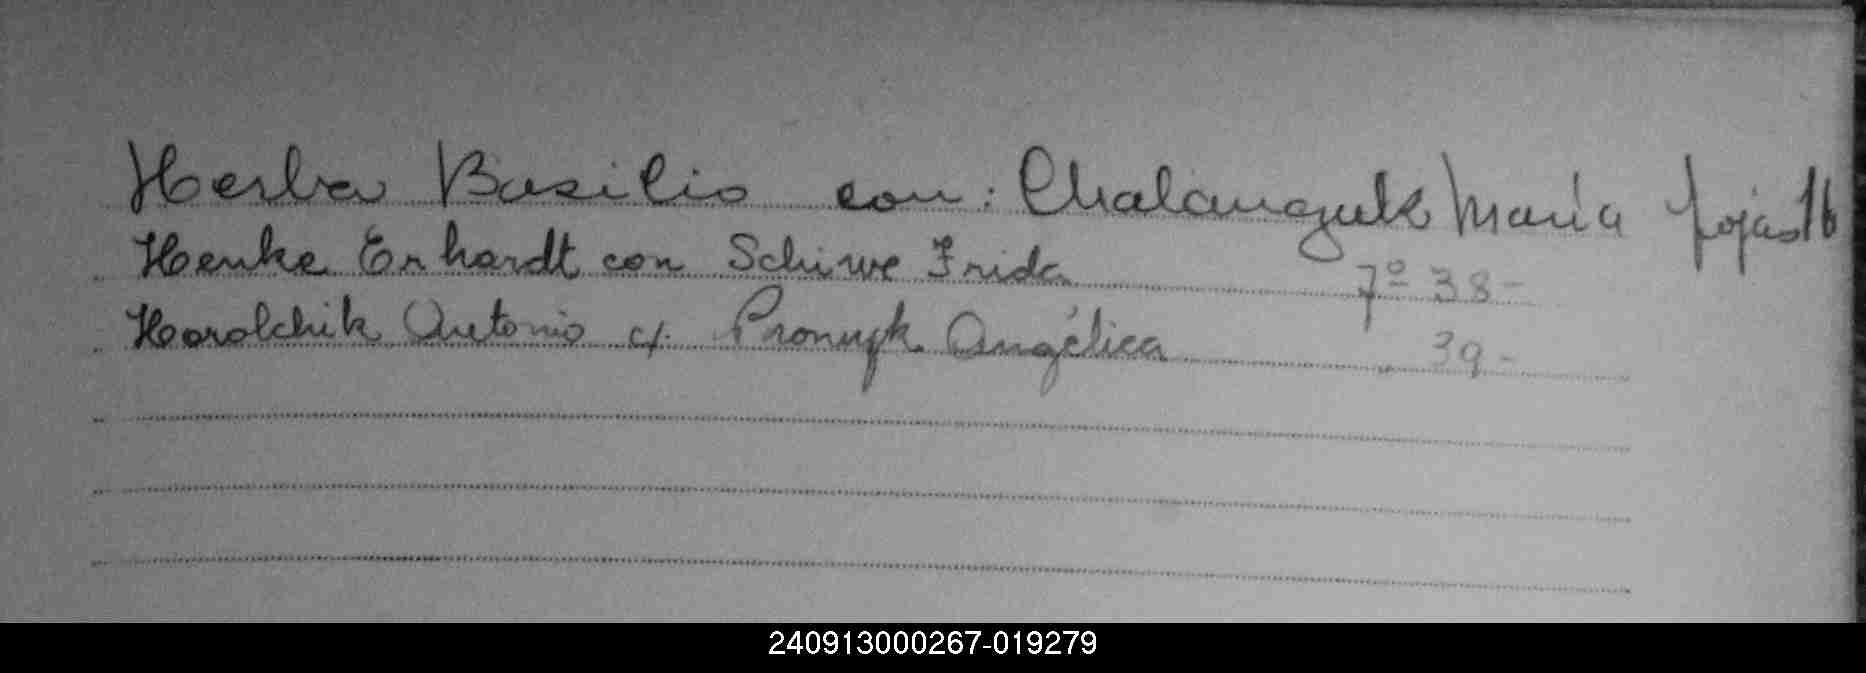 Herba Basilio con: Chalanczuk María fojas 16
Henke Erhardt con Schiwe Frida 7º 38-
Horolchik Antonio c/. Pronuyk Angélica " 39-
240913000267-019279